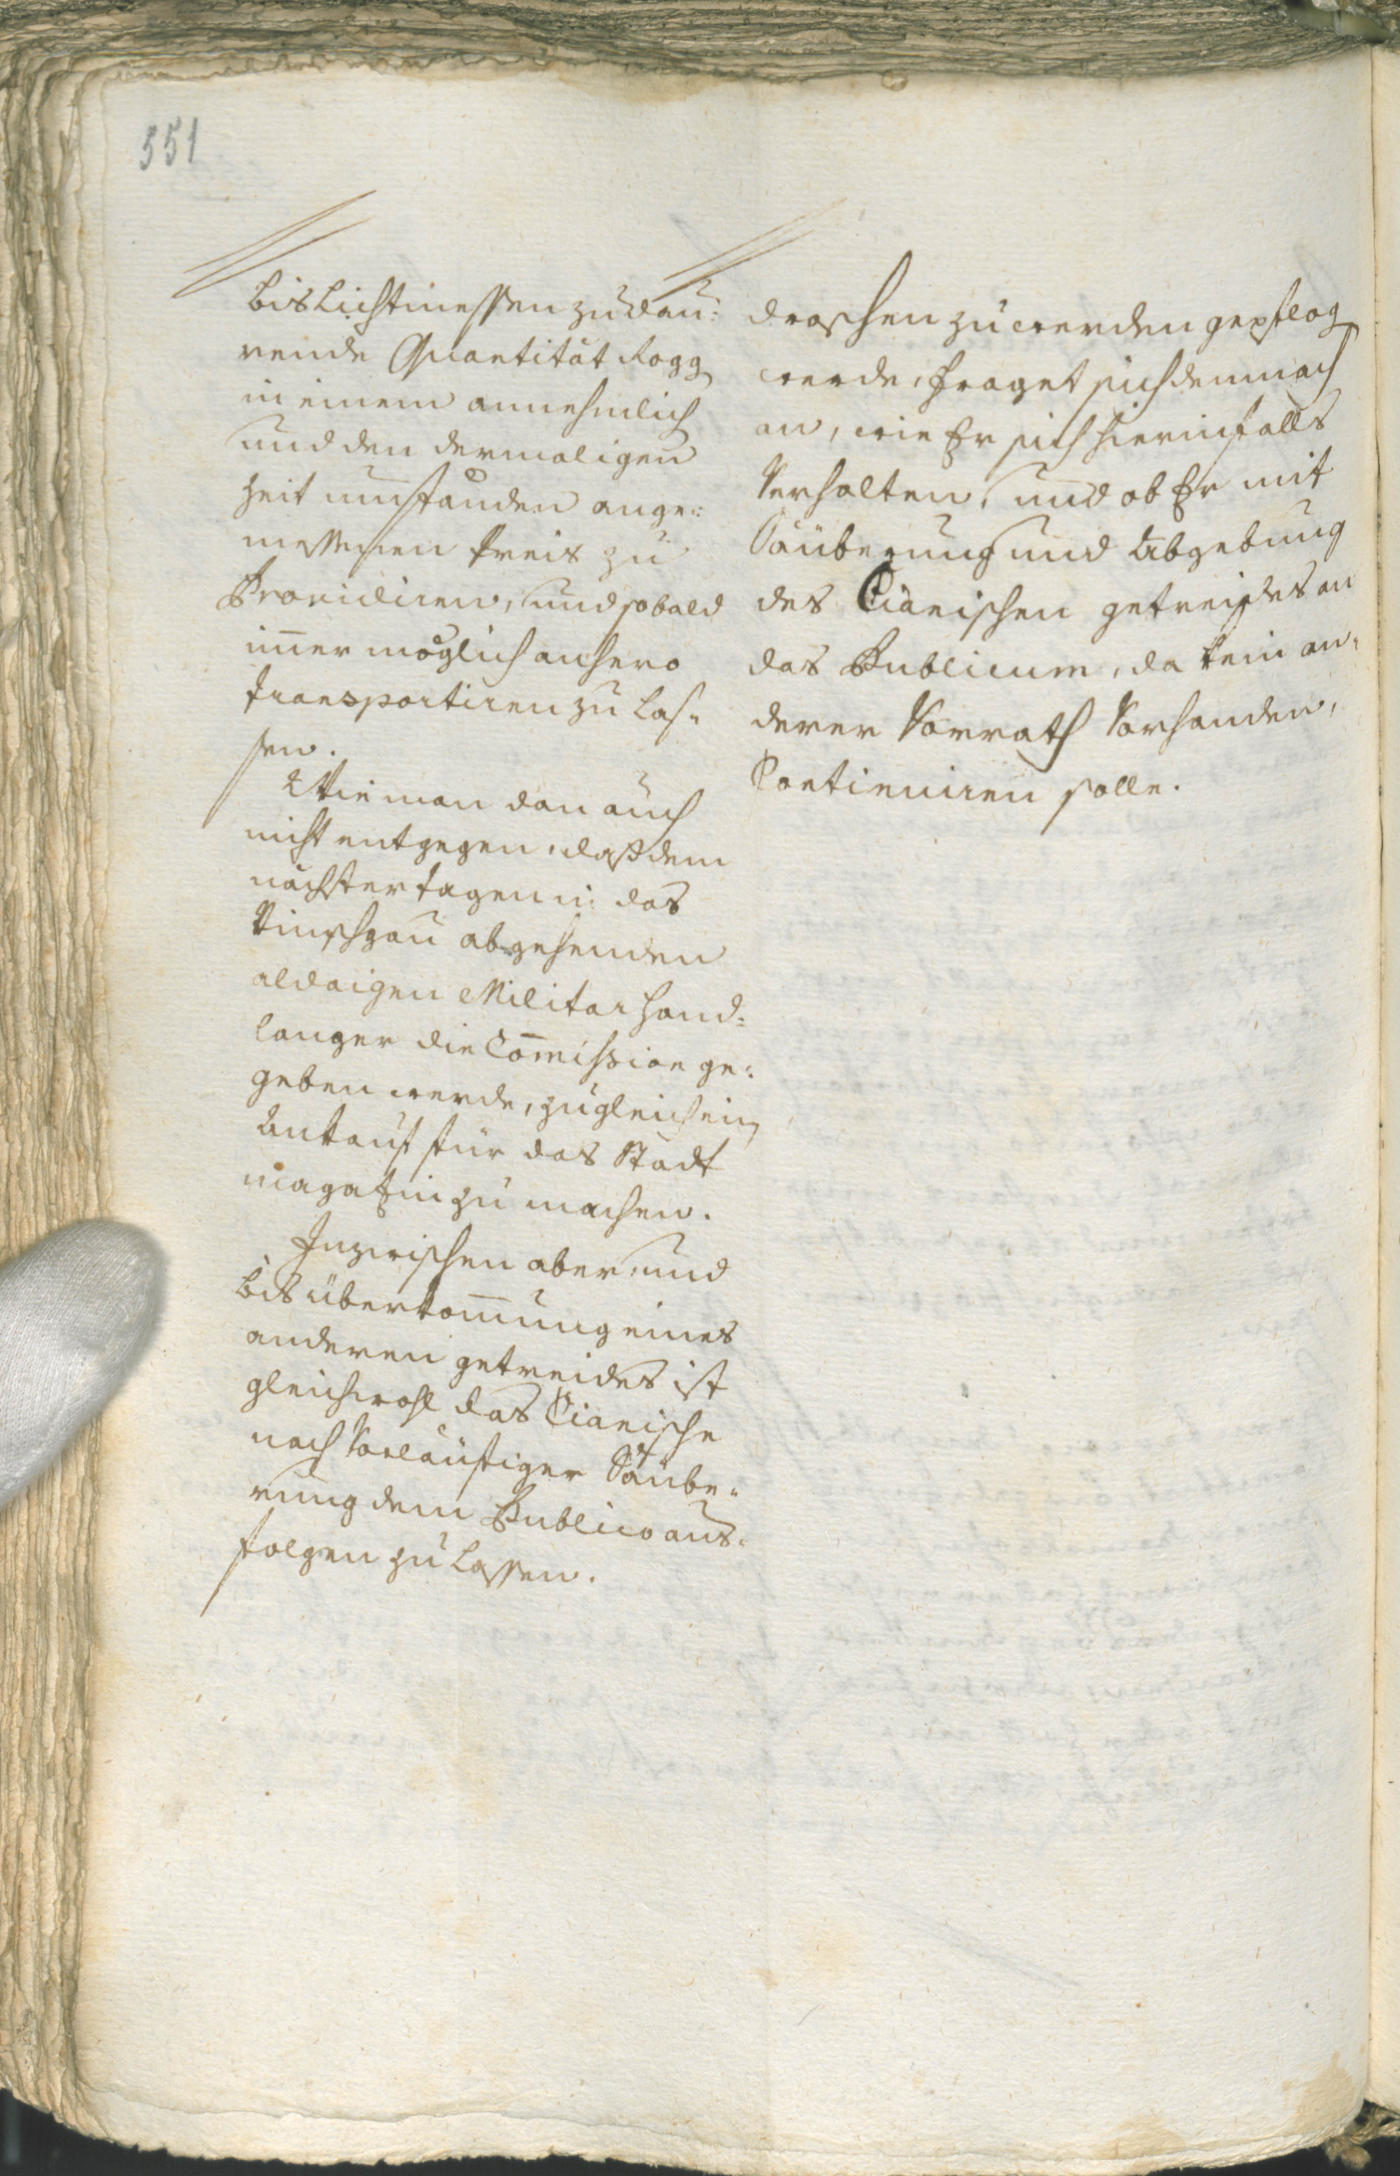 551
bis Lichtmessen zu dau:
rende Quantität Rogg
in einem annehmlich
und den dermaligen
Zeit umständen ange:
messenen Preis zu
Providiren, und sobald
immer möglich anhero
transportiren zu las:
sen.
Wie man dan auch
nicht entgegen, daß dem
nächster tagen in das
Vinschgau abgehenden
aldaigen Militar Hand:
langer die Commission ge:
geben werde, zugleich ein
Ankauf für das Stadt
magazin zu machen.
Inzwischen aber und
bis überkommung eines
anderen getreides ist
gleichwohl das Cianische
nach Vorläufiger Säube:
rung dem Publico aus:
folgen zu lassen.
droschen zu werden gepflog
werde, fraget sich demnach
an, wie Er sich hierinfalls
Verhalten, und ob Er mit
Säüberung und Abgebung
des Cianischen getreides an
das Publicum, da kein an:
derer Vorrath Vorhanden,
Continuiren solle.